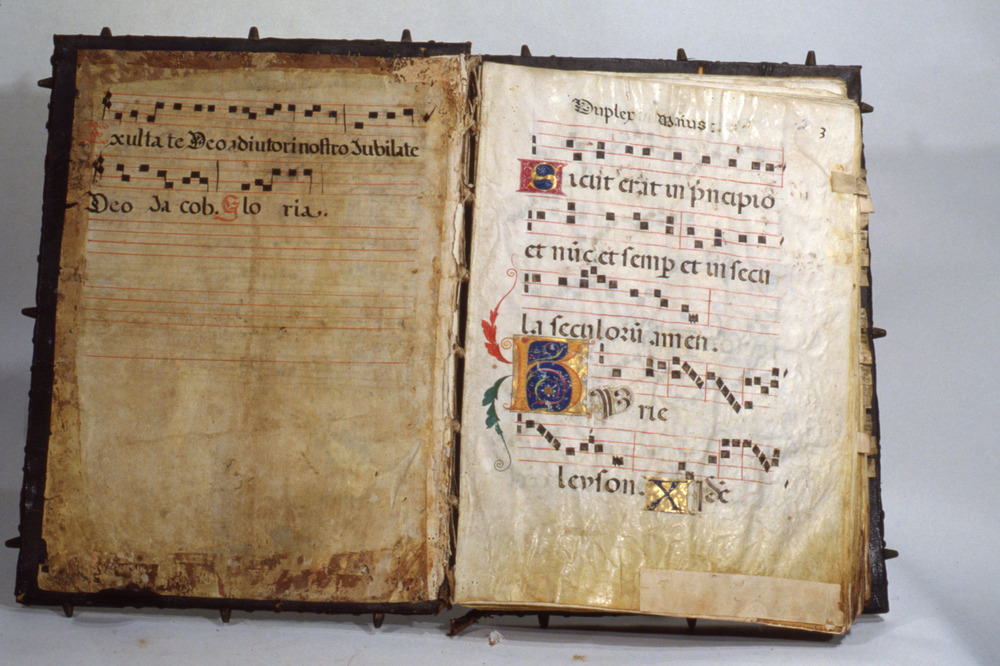 Exulta te Deo adiutori nostro Jubilate
Deo Ja cob. Glo ria.
Duplex maius :
3
Sicut erat in pncipio
et nūc et semp et in secu
la seculorū amen.
Kyrie
leyson. Xpē